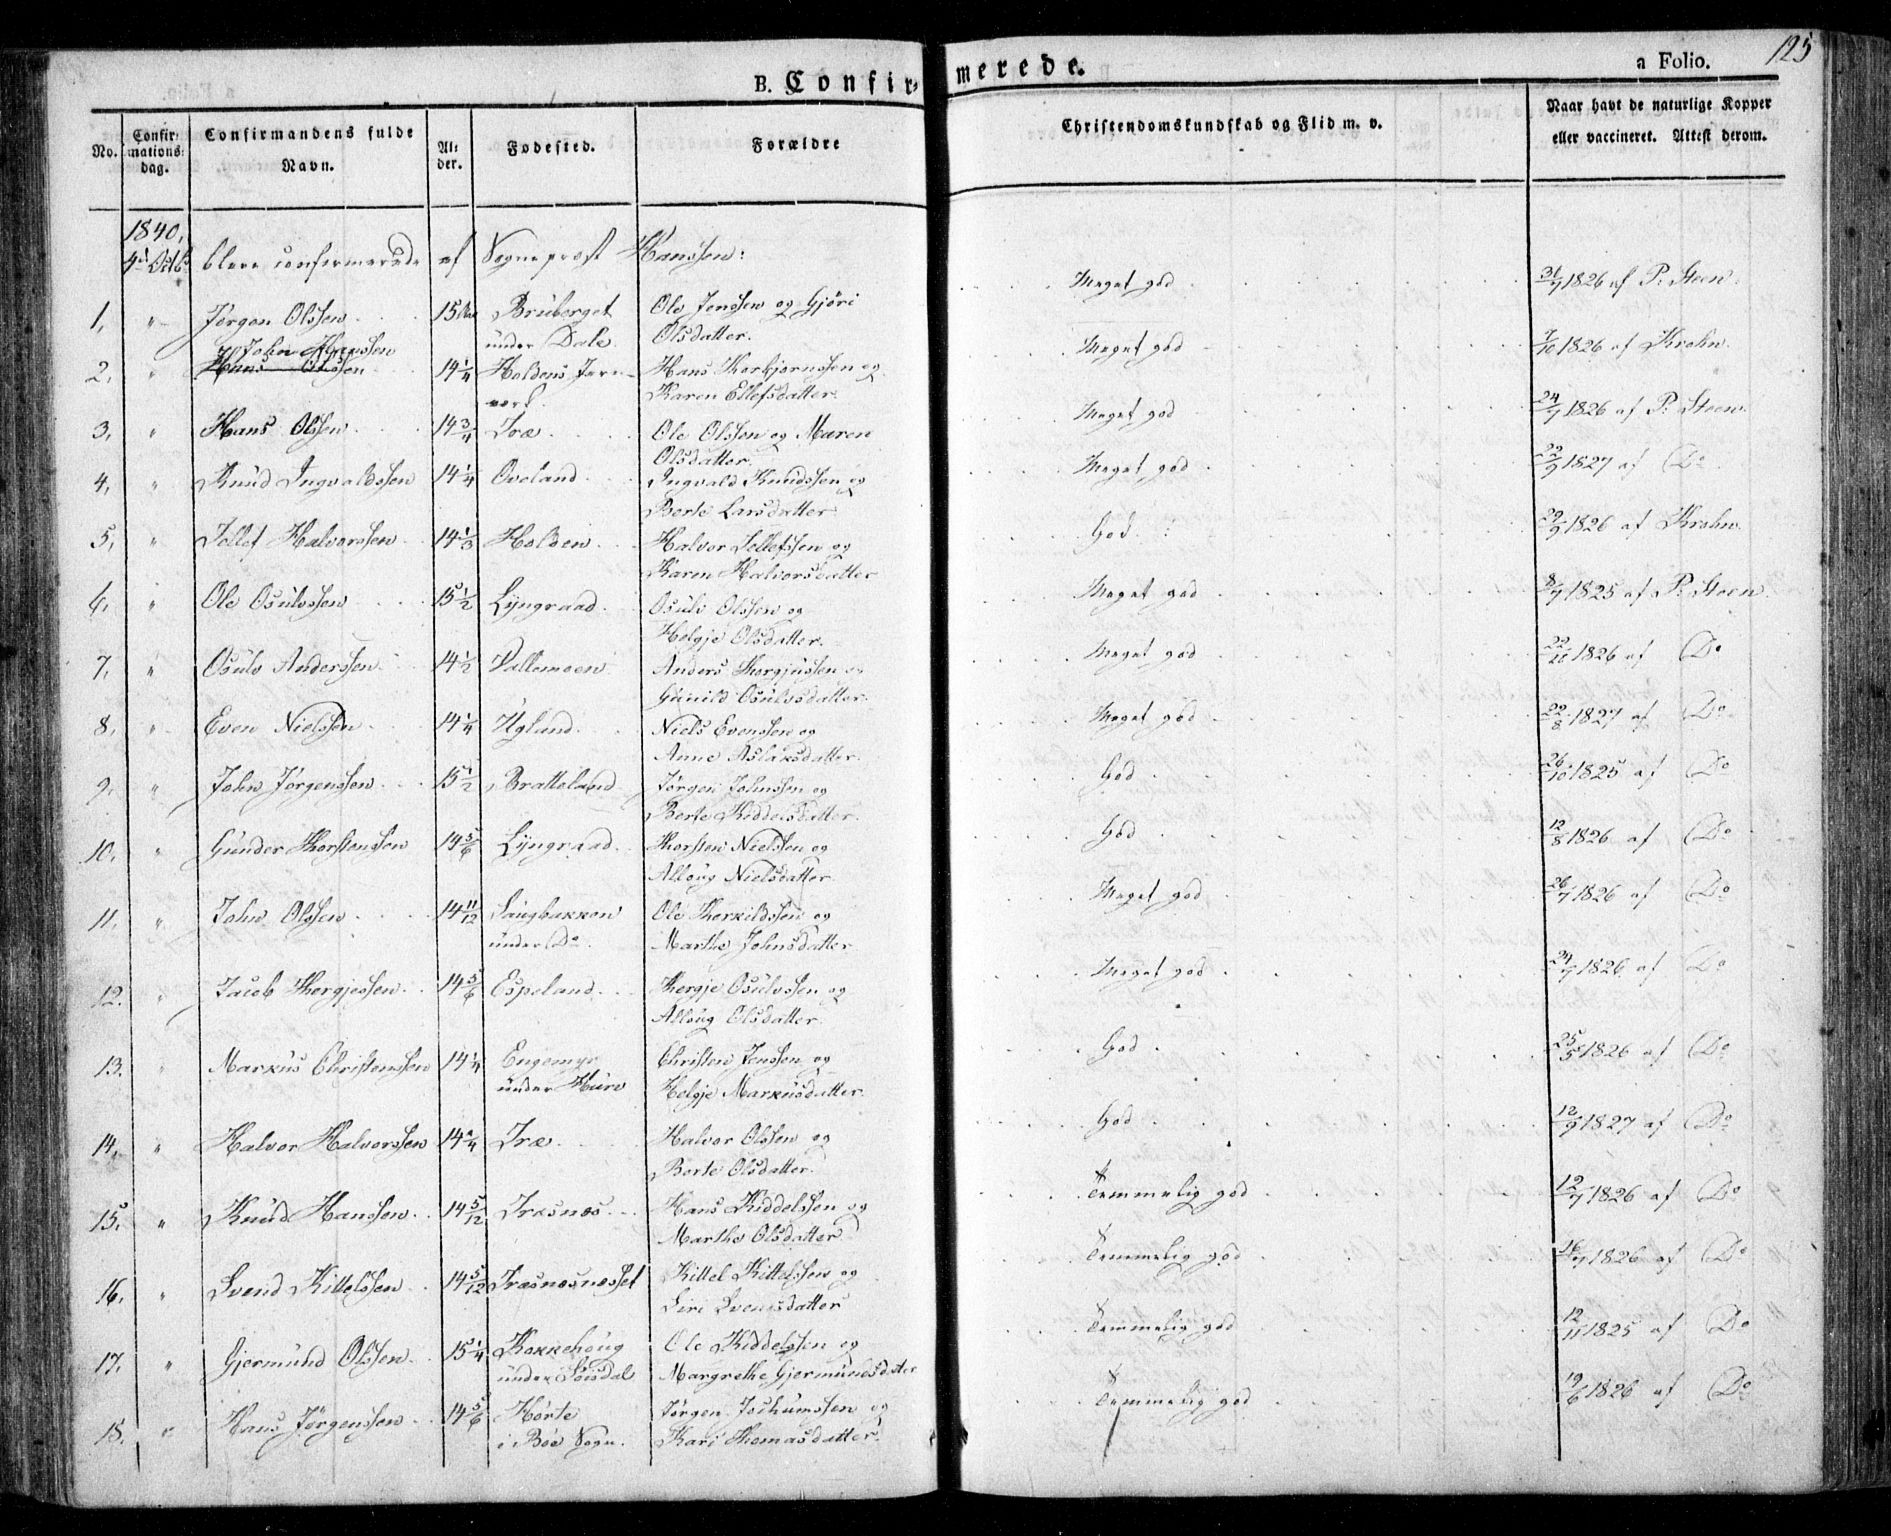 B. Confirmerede.
a Folio. 125
No.
Confirmationsdag.
Confirmandens fulde Navn.
Alder.
Fødested.
Forældre
Christendomskundskab og Flid m. v.
Naar havt de naturlige Kopper eller vaccineret. Attest derom.
1840,
4de Octb: bleve confirmerede af Sogneprest Hanssen:
1, " Jørgen Olssen 15 Bruberget under Dale Ole Jenssen og Gjøri Olsdatter. Meget god 31/7 1826 af P. Steen.
2, " John Hanssen 14 1/4 Holdens Jernverk. Hans Thorbjørnssen og Karen Ellefsdatter. Meget god 7/10 1826 af Krohn.
3, " Hans Olssen 14 3/4 Træ Ole Olssen og Maren Olsdatter. Meget god 24/7 1826 af P. Steen.
4, " Knud Ingvaldssen 14 1/4 Oveland Ingvald Knudssen og Berte Larsdatter Meget god 22/9 1827 af Do
5, " Tellef Halvorssen 14 1/3 Holden Halvor Tellefssen og Karen Halvorsdatter God 29/9 1826 af Krohn.
6, " Ole Osulvssen 15 1/2 Lyngraad Osulv Olssen og Helgje Olsdatter. Meget god 8/7 1825 af P. Steen.
7, " Osulv Anderssen 14 1/2 Dallemoen Anders Thorgjussen og Gunild Osulvsdatter. Meget god 22/10 1826 af Do
8, " Even Nielssen 14 1/4 Ugland Niels Evenssen og Anne Aslaksdatter. Meget god 22/8 1827 af Do
9, " John Jørgenssen 15 1/2 Bratteland Jørgen Johnssen og Berte Kiddelsdatter. God 26/10 1825 af Do
10, " Gunder Thorstenssen 14 5/6 Lyngraad Thorsten Nielssen og Alloug Nielsdatter. God 12/8 1826 af Do
11, " John Olssen 14 11/12 Laugbakken under Do. Ole Therkildssen og Marthe Johnsdatter Meget god 26/7 1826 af Do
12. " Jacob Thergjessen 14 5/6 Espeland Thergje Osulvssen og Alloug Olsdatter. Meget god 24/7 1826 af Do
13. " Markus Christenssen 14 1/4 Engemyr under Hure Christen Jenssen og Helgje Markusdatter. God 25/5 1826 af Do
14, " Halvor Halvorssen 14 1/4 Træ Halvor Olssen og Berte Olsdatter. God 12/9 1827 af Do
15, " Knud Hanssen 14 5/12 Træsnæs Hans Kiddelssen og Marthe Olsdatter Temmelig god 12/7 1826 af Do
16, " Svend Kittelssen 14 5/12 Træsnæsnæsset Kittel Kittelssen og Siri Svensdatter Temmelig god 26/7 1826 af Do
17, " Gjermund Olssen 15 1/4 Kokkehoug under Ole Kiddelssen og Margrethe Gjermundsdatter Temmelig god 12/11 1825 af Do
18. " Hans Jørgenssen 14 5/6 Hørte i Bøe Sogn. Jørgen Jochumssen og Kari Thomasdatter. Temmelig god 19/6 1826 af Do